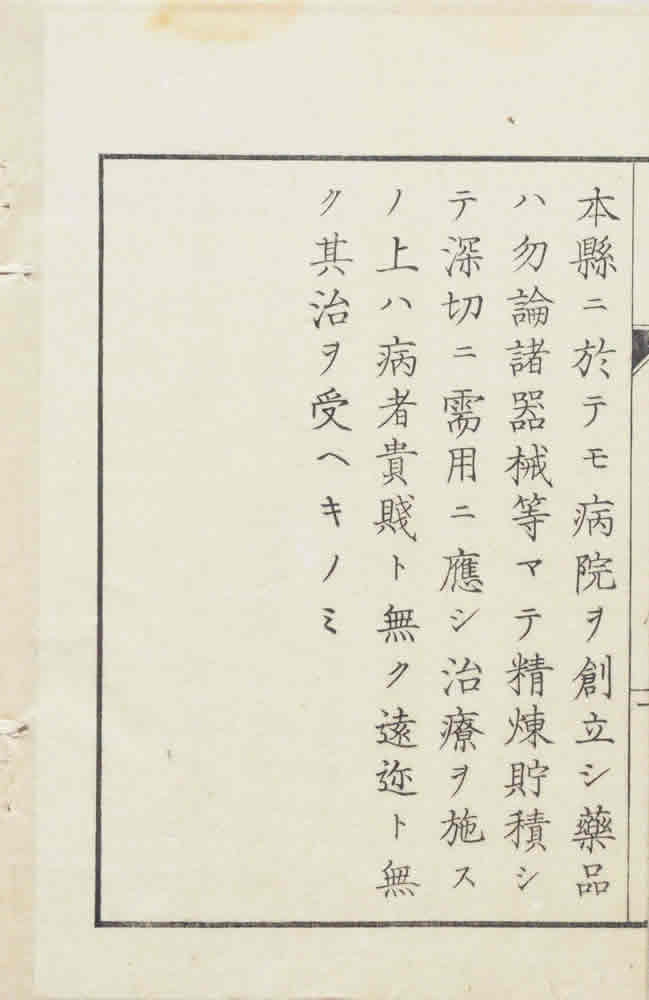 本縣ニ於テモ病院ヲ創立シ藥品
ハ勿論諸器械等マテ精煉貯積シ
テ深切ニ需用ニ應シ治療ヲ施ス
ノ上ハ病者貴賤ト無ク遠迩ト無
ク其治ヲ受ヘキノミ